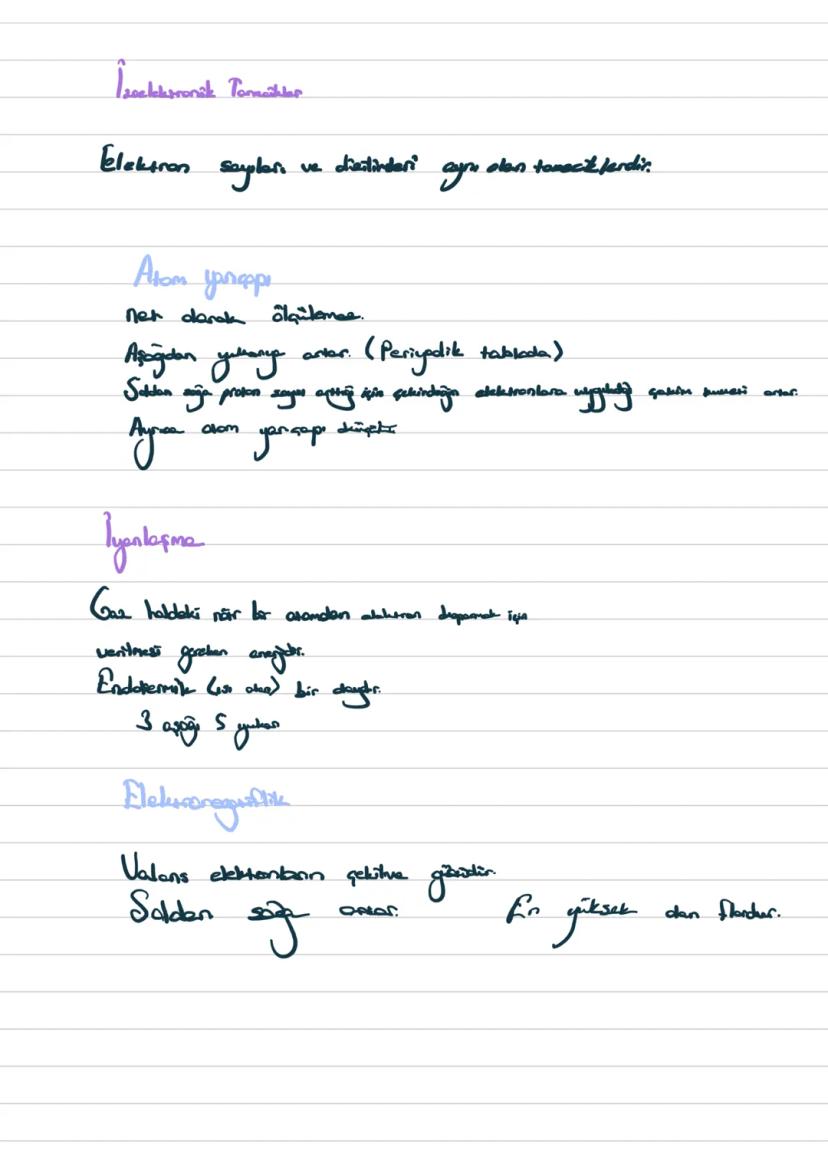 İzoelektronik Tanecikler
Elektron sayıları ve dizilimleri aynı olan taneciklerdir.
Atom yarıçapı
net olarak ölçülemez.
Aşağıdan yukarıya artar. (Periyodik tabloda)
Soldan sağa proton sayısı arttığı için çekirdeğin elektronlara uyguladığı çekim kuvveti artar.
Ayrıca atom yarıçapı
İyonlaşma
Gaz haldeki nötr bir atomdan elektron koparmak için
verilmesi gereken enerjidir.
Endotermik (ısı alan) bir olaydır.
3 aşağı 5 yukarı
Elektronegatiflik
Valans elektronların çekilme gücüdür.
Soldan sağa artar. En yüksek olan flordur.